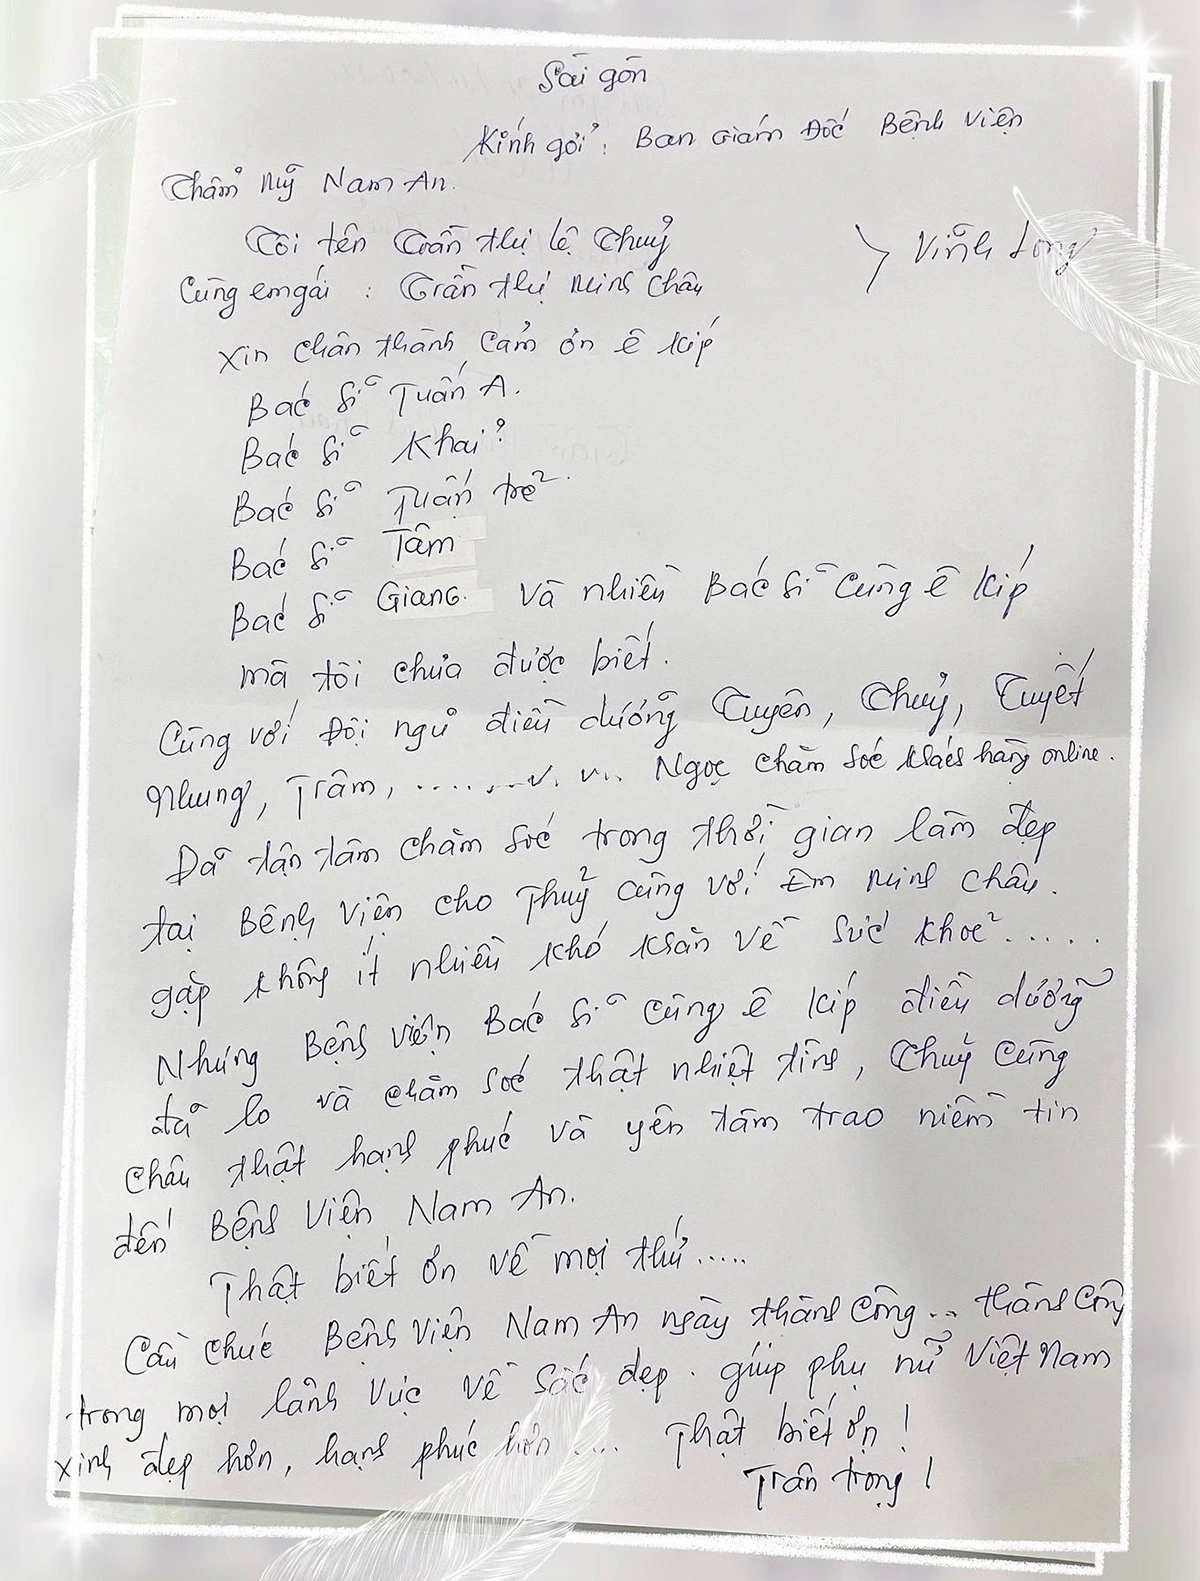 Sài gòn
Kính gởi: Ban Giám Đốc Bệnh Viện
Thẩm Mỹ Nam An.
Tôi tên Trần thị lệ Thuỷ
Vĩnh Long
Cùng em gái : Trần thị Minh Châu
Xin chân thành cảm ơn ê kíp
Bác sĩ Tuấn A.
Bác sĩ Khải
Bác sĩ Tuấn trẻ.
Bác sĩ Tâm
Bác sĩ Giang. và nhiều Bác sĩ cùng ê kíp
mà tôi chưa được biết.
Cùng với Đội ngủ điều dưỡng Tuyên, Thuỷ, Tuyết
Nhung, Trâm, ......, v. v... Ngọc chăm sóc khách hàng online.
Đã tận tâm chăm sóc trong thời gian làm đẹp
tại Bệnh Viện cho Thuỷ cùng với Em Minh Châu.
gặp không ít nhiều khó khăn về sức khoẻ.....
Nhưng Bệnh viện Bác sĩ cùng ê kíp điều dưỡng
đã lo và chăm sóc thật nhiệt tình, Thuỷ cùng
Châu thật hạnh phúc và yên tâm trao niềm tin
đến Bệnh Viện Nam An.
Thật biết ơn về mọi thứ.....
Cầu chúc Bệnh Viện Nam An ngày thành công... thành công
trong mọi lãnh vực về sắc đẹp. giúp phụ nữ Việt Nam
xinh đẹp hơn, hạnh phúc hơn .... Thật biết ơn!
Trân trọng!